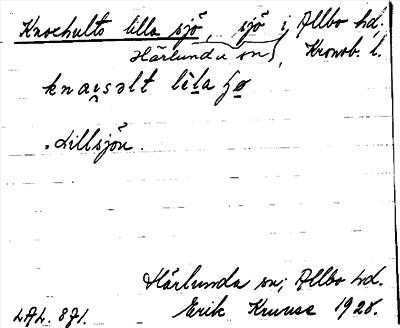 Knoxhults lilla sjö, sjö i Allbo hd.
Härlunda sn, Kronob. l.
knaɪ̯səlt lèla ɧø
Lillsjön.
Härlunda sn; Allbo hd.
LAL. 871. Erik Kruuse 1928.